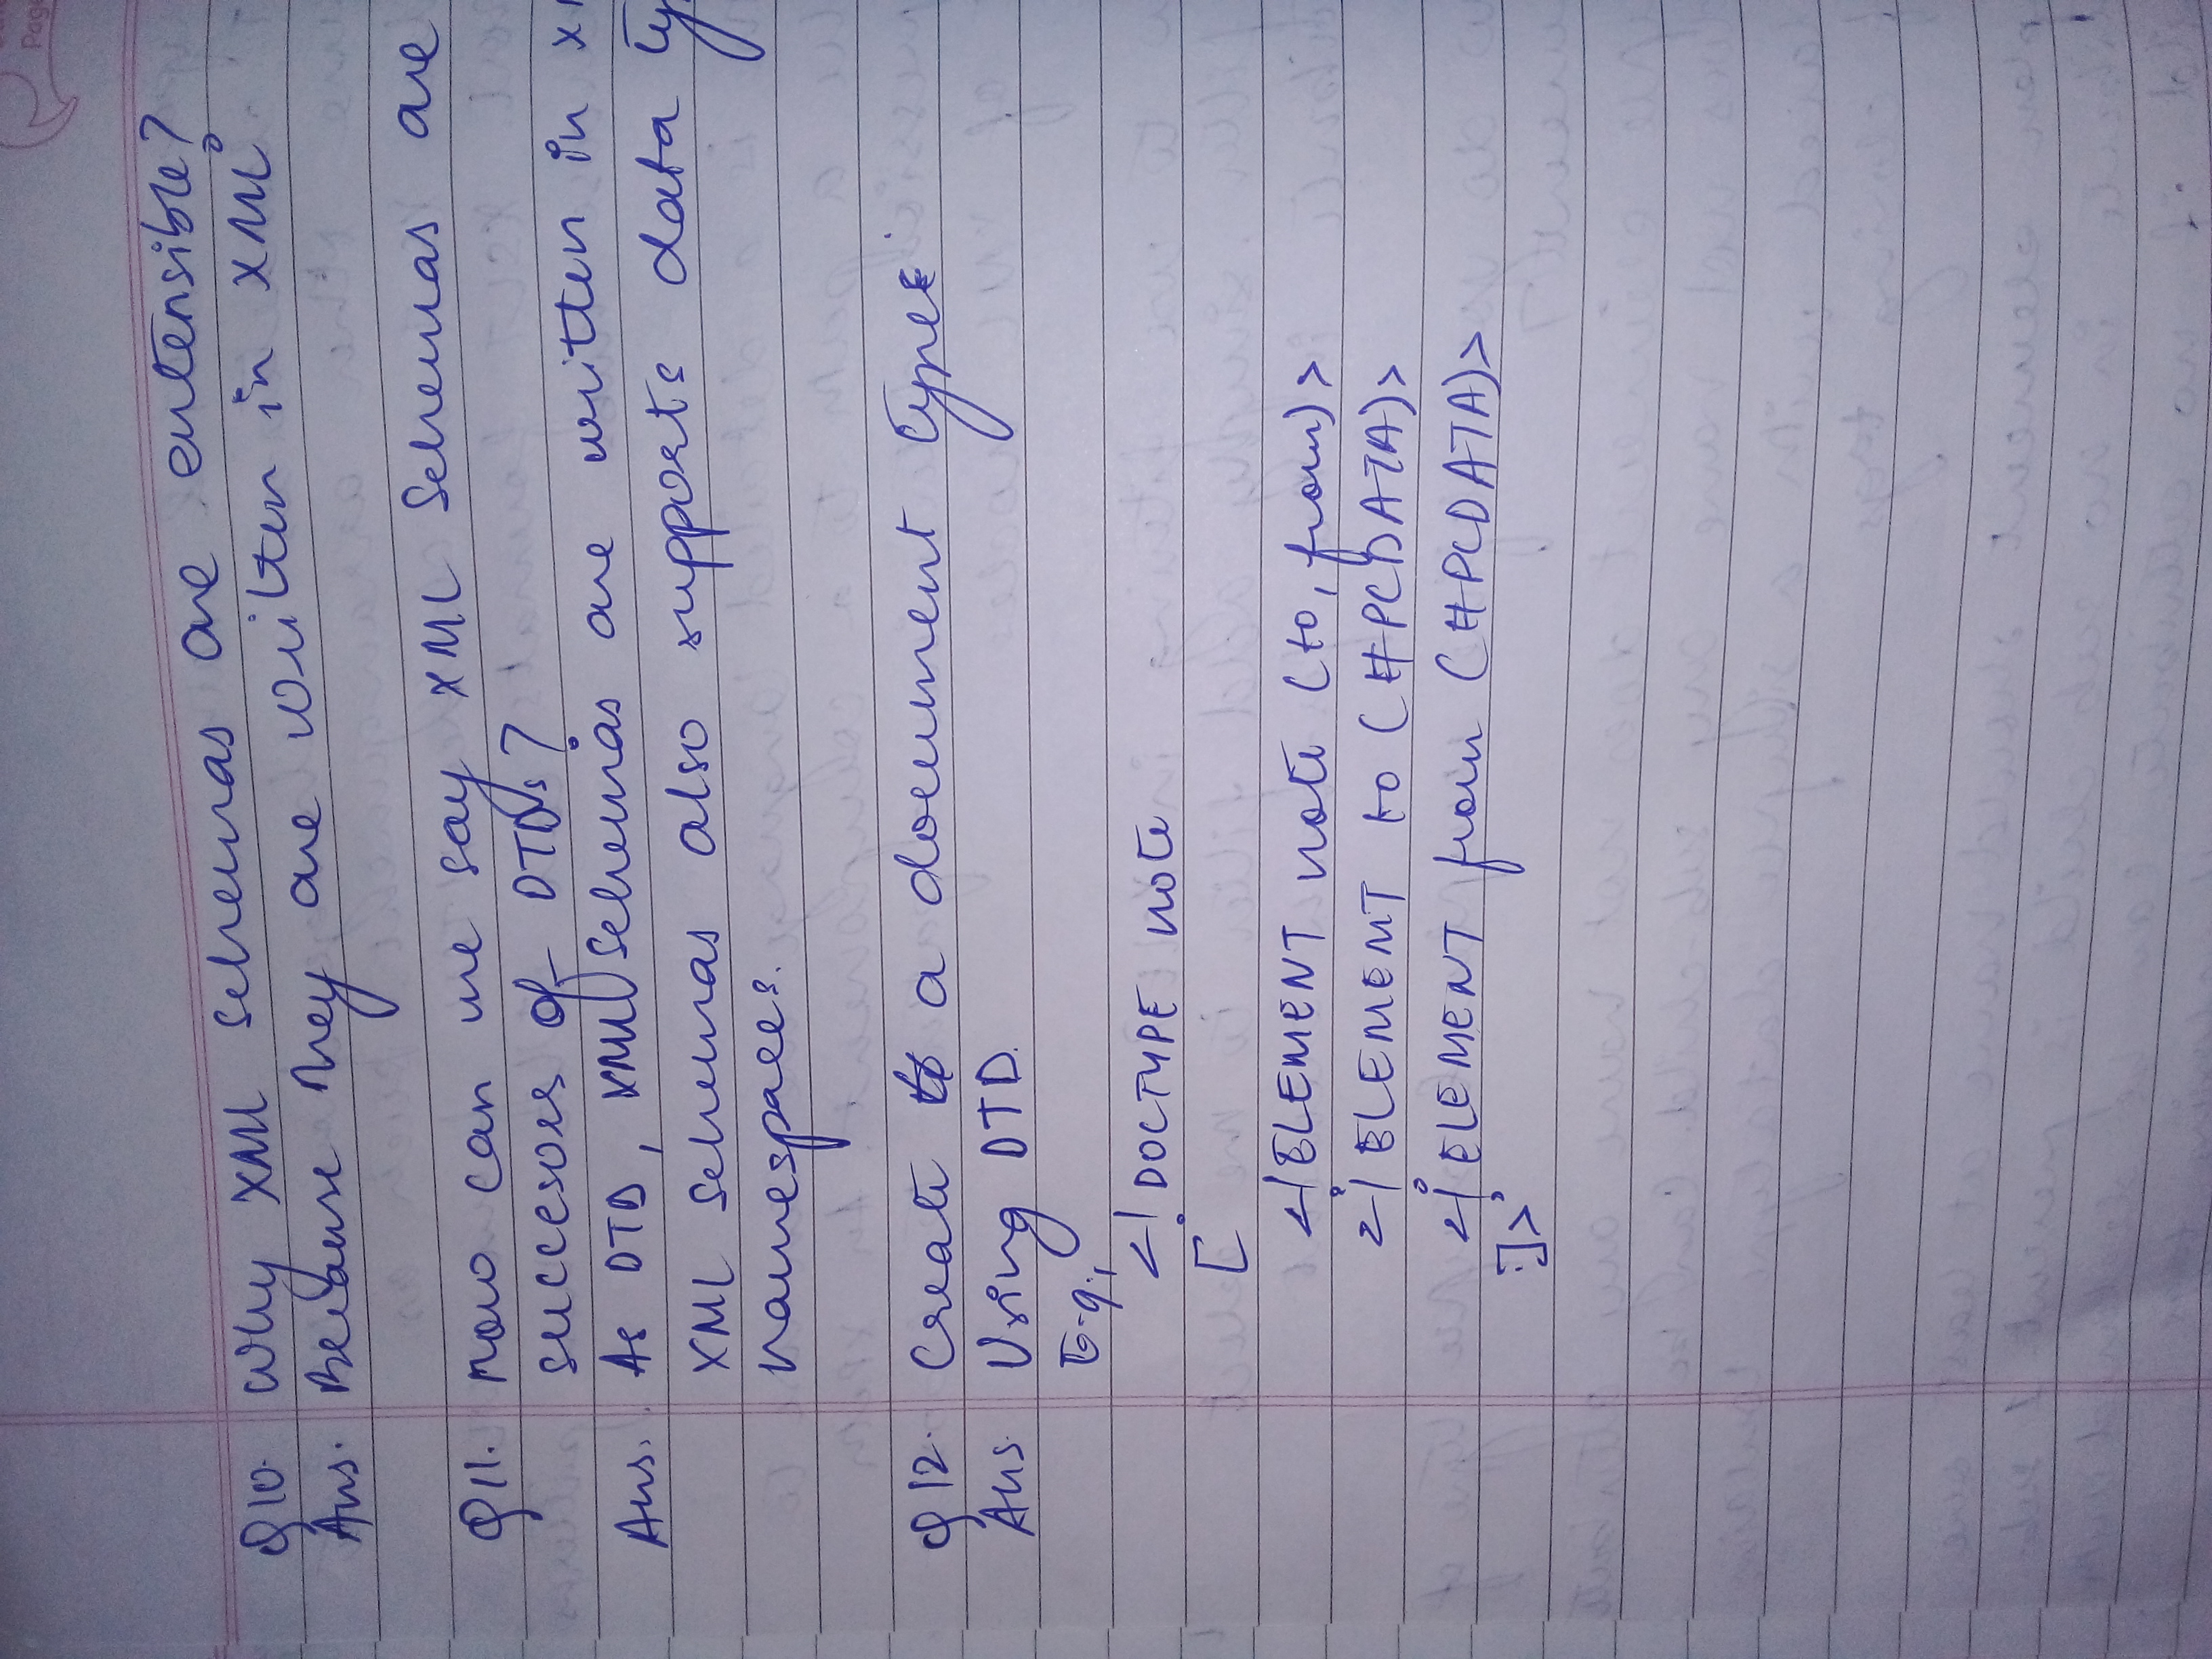 Page
Q10. Why XML schemas are extensible?
Ans. Because they are written in XML.
Q11. How can we say XML Schemas are
succesors of DTDs?
Ans. As DTD, XML Schemas are written in
XML schemas also supports data
namespaces.
Q12. Create a document type:
Ans Using DTD.
E.g.,
<! DOCTYPE note
[
<! ELEMENT note (to, from)>
<! ELEMENT to (#PCDATA)>
<! ELEMENT from (#PCDATA)>
]>